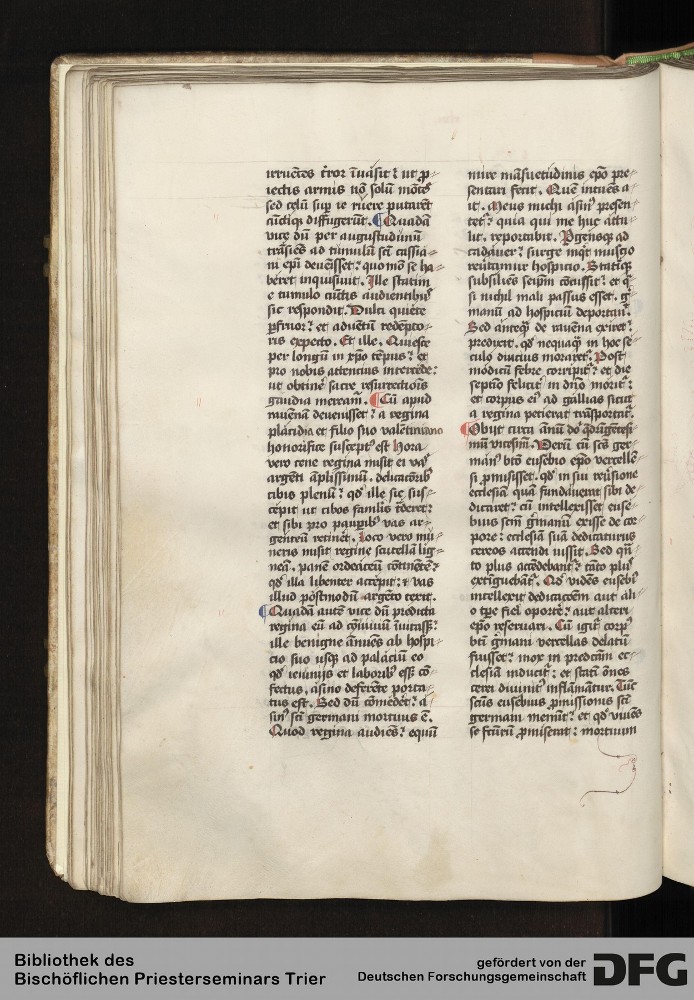 irruētes t̄ror īuāsit ⁊ ut ꝓ-
iectis armis nō solū mōtē
sed celū sup̲ se ruere putarēt
cūctiqꝫ diffugerūt. Quadā
vice dū per augustudunū
trāsiēs ad tumulū sc̄i cassia-
ni ep̄i deuēisset: quomō se ha-
beret inquisiuit. Ille statim
e tumulo cūctis audientibꝰ
sic respondit. Dulci quiete
ꝑfruor: et aduētū redēpto-
ris expecto. Et ille. Quiesce
per longū in xp̄o tēpus: et
pro nobis attencius intercede:
ut obtineꝰ sacre resurrectiōis
gaudia meream̄. Cū apud
rauēnam deuenisset: a regina
placidia et filio suo valentiniano
honorifice susceptꝰ est Hora
vero cene regina misit ei vas
argēti āplissimū. delicatoribꝰ
cibis plenū: qd̄ ille sic sus-
cepit ut cibos familis t̄deret:
et sibi pro pauꝑibꝰ vas ar-
genteū retinēt. Loco vero mu-
neris misit regine scutellā lig-
neā. panē ordeiceū cōtinētē:
qd̄ illa libenter accepit: ⁊ vas
illud pōstmodū argēto texit.
Quadā autē vice dū predicta
regina eū ad cōuiuiū īuitass̄:
ille benigne ānuēs ab hospi-
cio suo usqꝫ ad palaciū eo
qd̄ ieiunijs et laboribꝰ ess̄ cō-
fectus, asino deferēte porta-
tus est. Sed dū comedēt: a-
sinꝰ sc̄i germani mortuus ē.
Quod regina audiēs: equū
mire māsuetudinis ep̄o pre-
sentari fecit. Quē intuēs a-
it. Meus michi asinꝰ presen-
tet̄: quia qui me huc attu-
lit. reportabit. Pgensqꝫ ad
cadauer: surge inqt̄ mulgo
reuertamur hospicio. Statīqꝫ
subsiliēs seip̄m cōcussit: et qͣ-
si nichil mali passus esset. gͤ-
manū ad hospiciū deportauit.
Sed anteqͣꝫ de rauena exiret:
predixit. qd̄ nequaqͣꝫ in hoc se-
culo diucius moraret̄. Post
modicū febre corripit̄: et die
septīo feliciter in dn̄o morit̄:
et corpus eiꝰ ad gallias sicut
a regina petierat trāsportat̄.
Obijt circa ānū dn̄i qͣdrīgētesi-
mū vicesim̄. Verū cū sc̄s ger-
manꝰ bt̄o eusebio ep̄o vercellē-
si ꝓmisisset. qd̄ in sui reūsione
ecclesiā quā fundauerat sibi de-
dicaret: cū intellexisset euse-
bius sc̄m gͤmanū exisse de cor-
pore: ecclesiā suā dedicaturus
cereos accendi iussit. Sed qn̄-
to plus accēdebant̄: tāto plꝰ
extīguebāt̄. Qd̄ vidēs eusebiꝰ
intellexit dedicacōem aut ali-
o tp̄re fieri oporte: aut alteri
ep̄o reseruari. Cū igit̄ corpꝰ
bt̄i gͤmani vercellas delatū
fuisset: mox in predc̄am ec-
clesiā inducit̄: et statī ōnes
cerei diuinitꝰ inflāmātur. Tūc
sc̄us eusebius ꝓmissionis sc̄i
germani meminit: et qd̄ viuēs
se fc̄urū ꝓmiserat: mortuum
Bibliothek des
Bischöflichen Priesterseminars Trier
gefördert von der
Deutschen Forschungsgemeinschaft
DFG